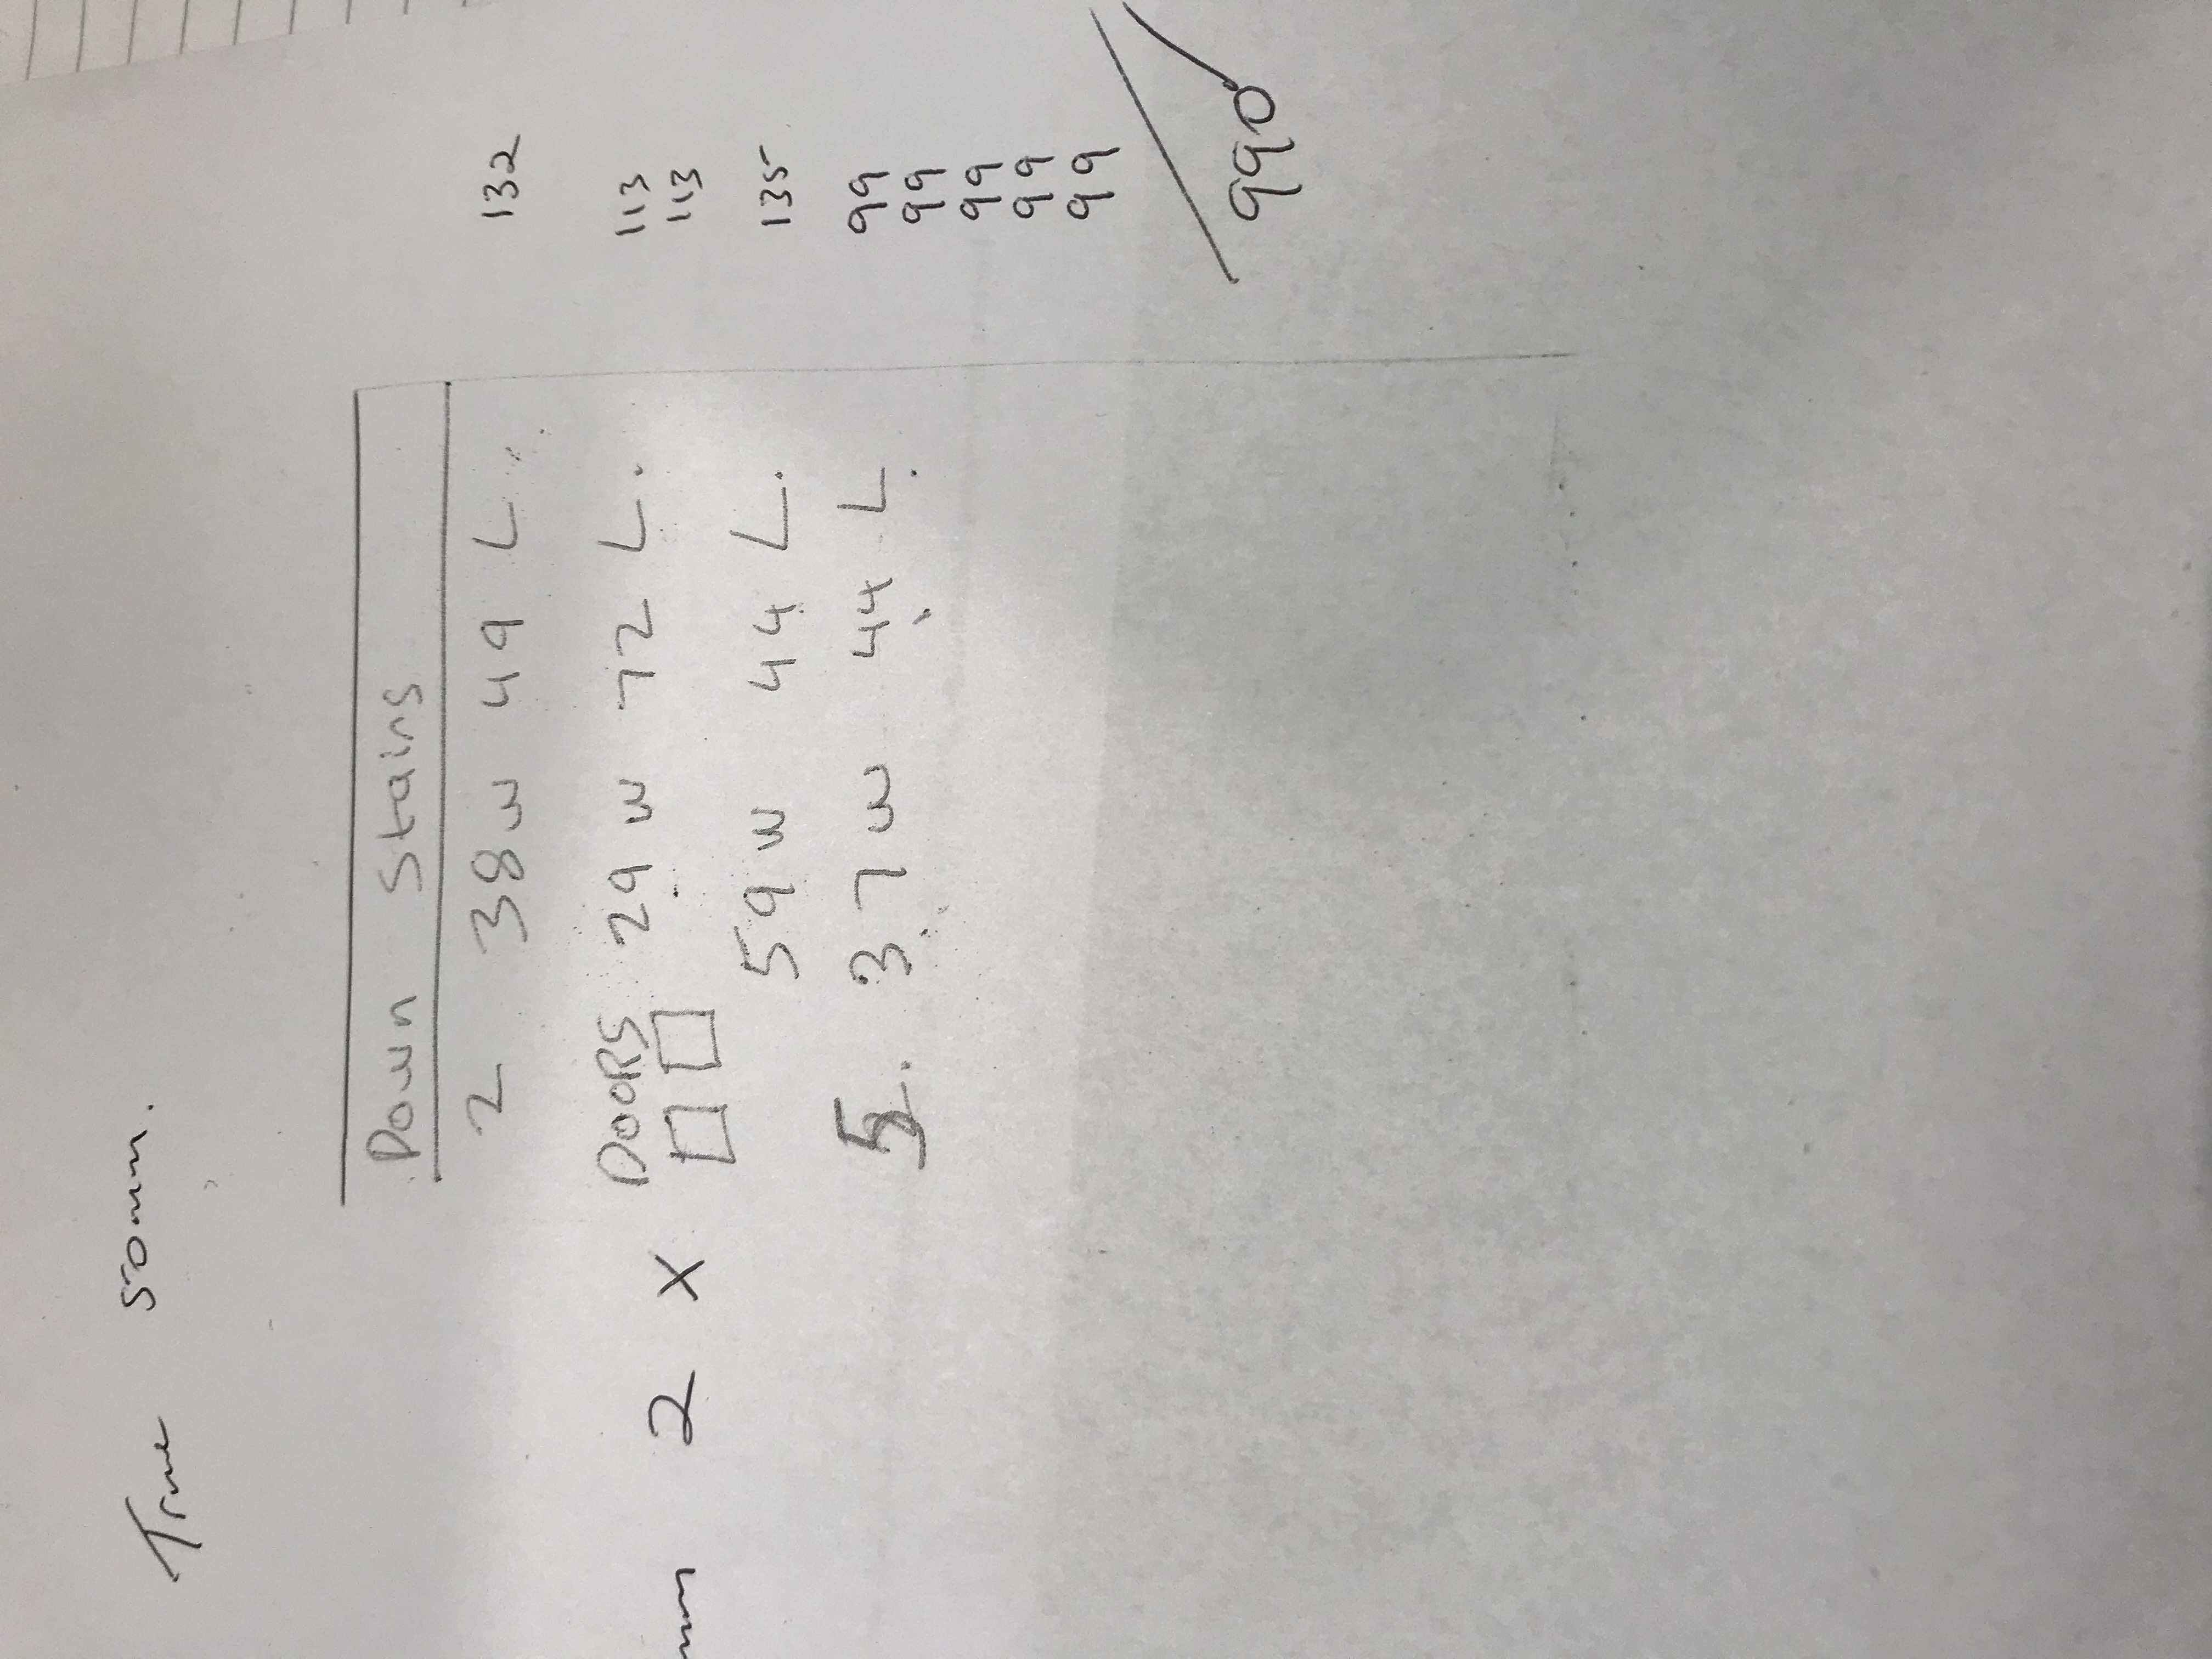 True 50mm.
Down Stairs
2 38w 49 L. 132
DOORS 29w 72 L. 113
mm 2 x 113
59w 44 L. 135
5. 37w 44 L. 99
99
99
99
99
990